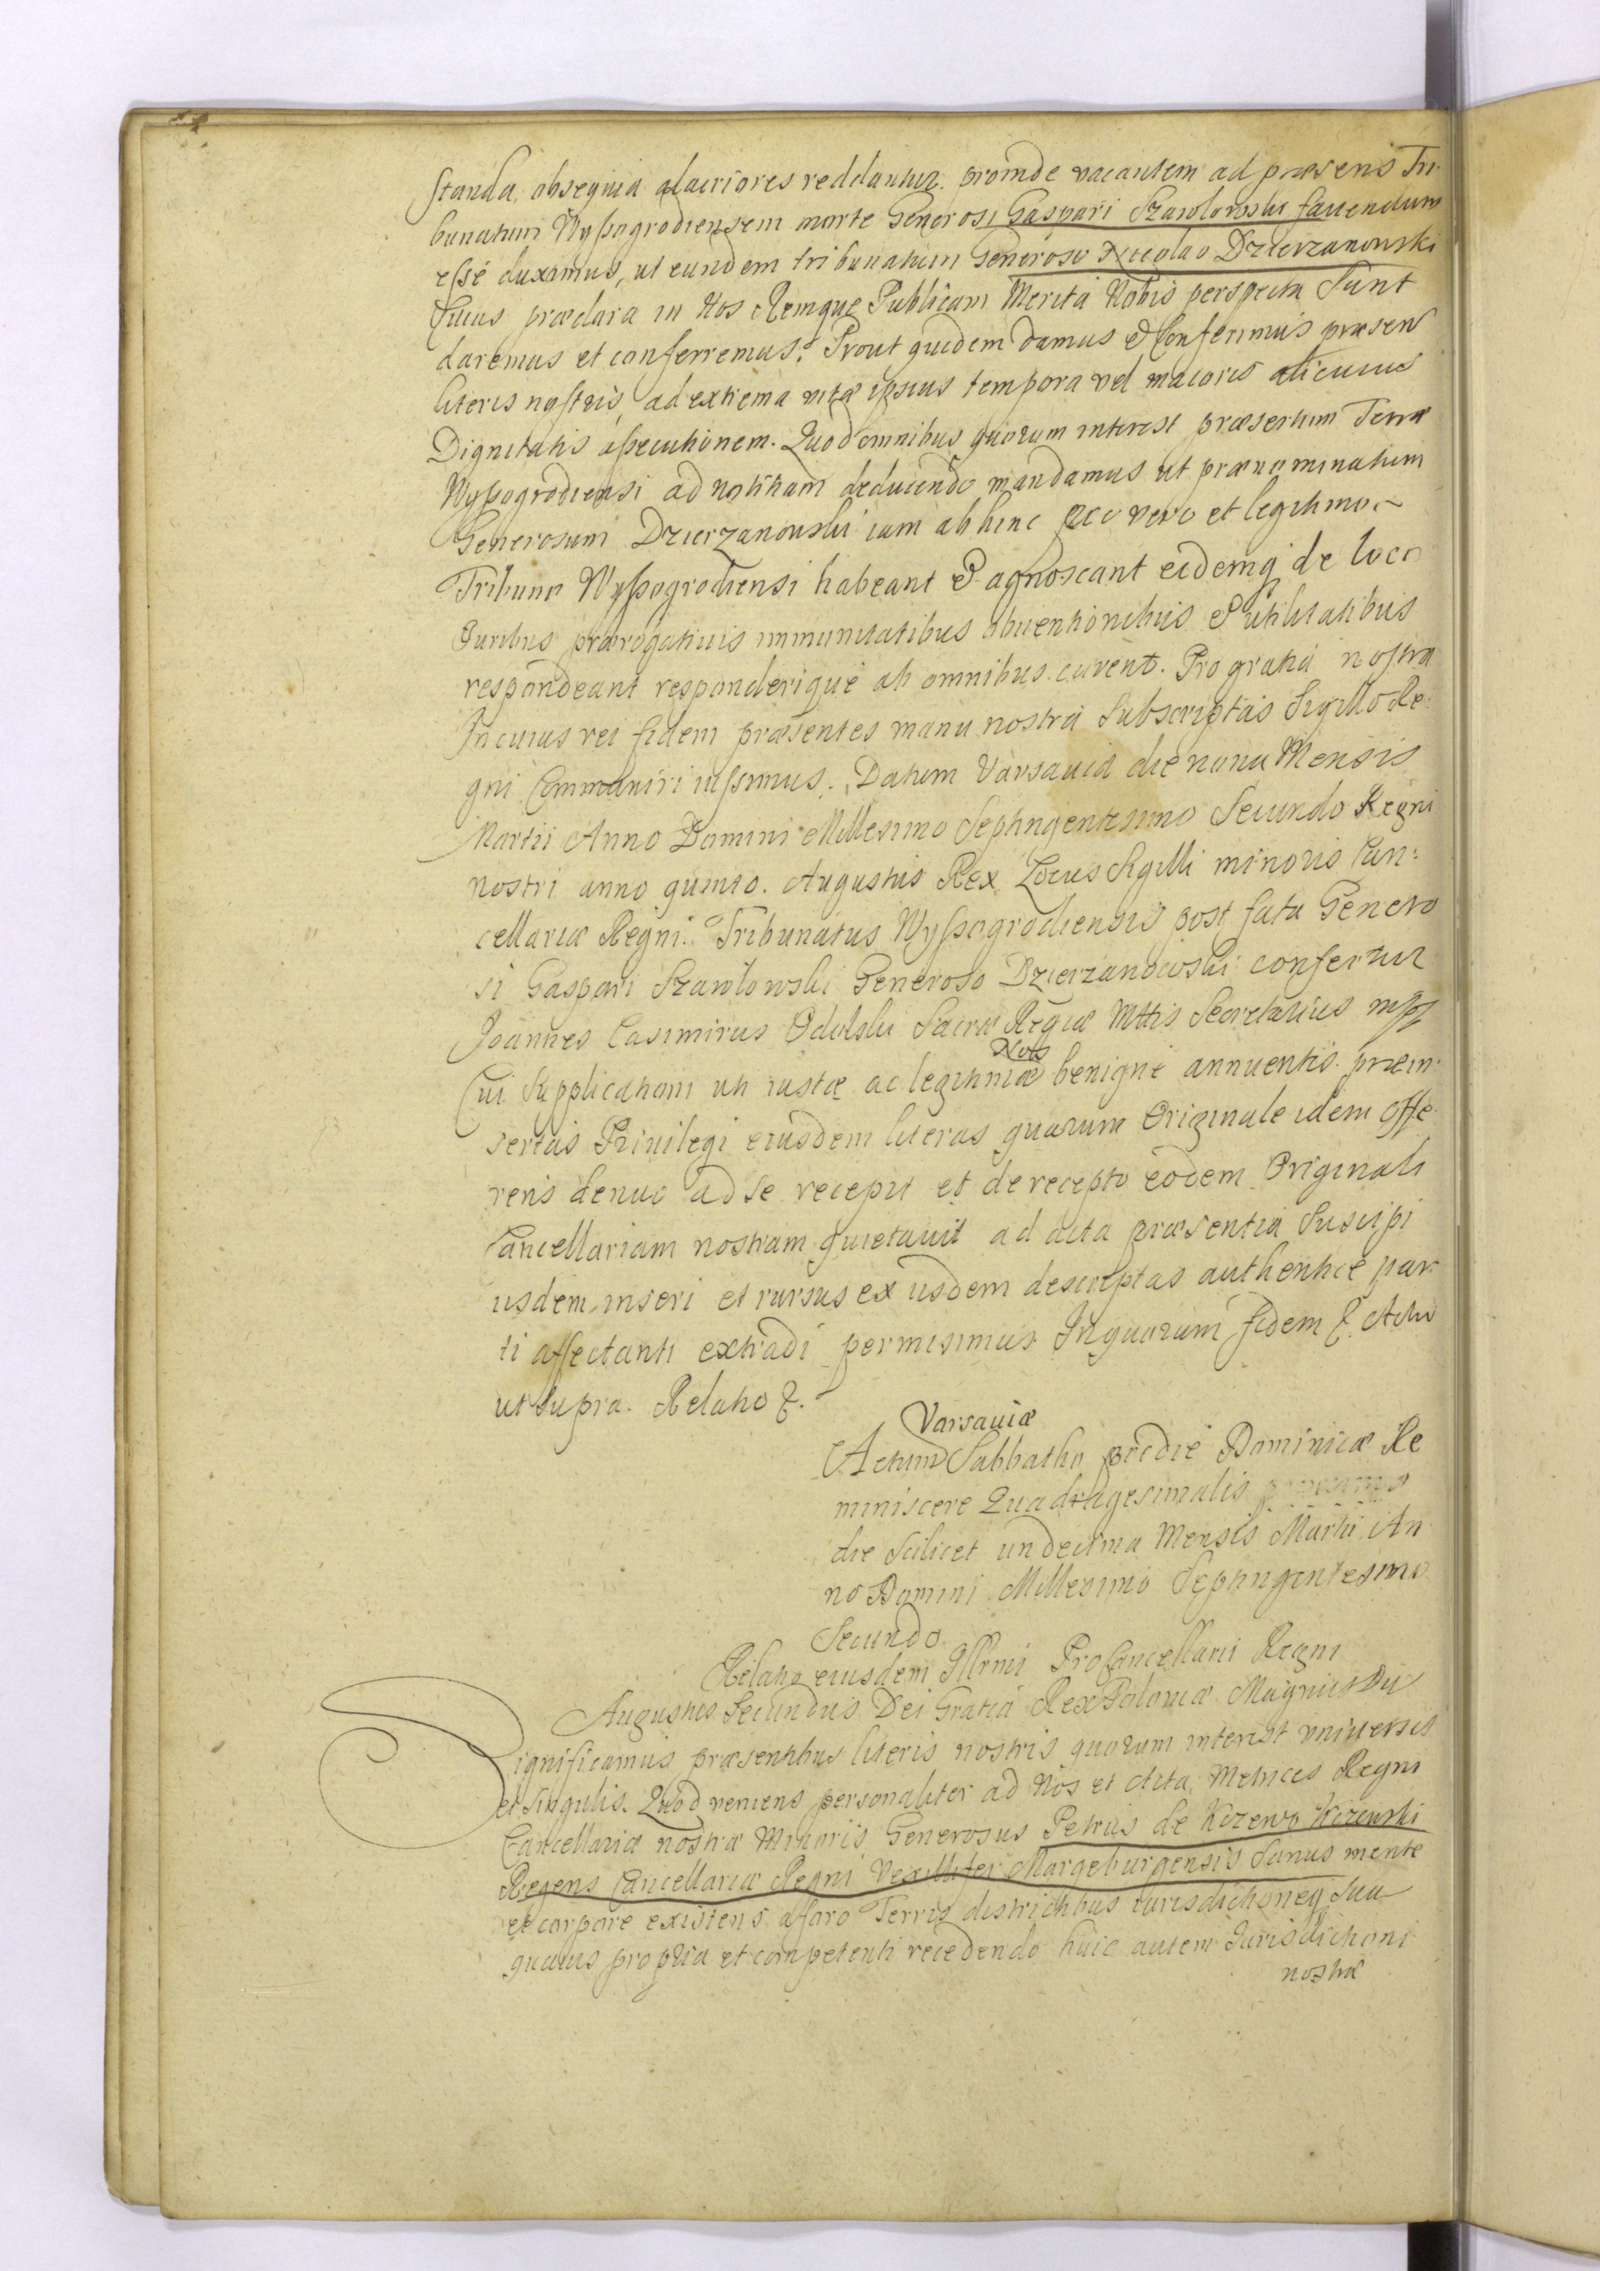 standa, obsequia alacriores reddantur. proinde vacantem ad præsens Tri-
bunatum Wyszogrodiensem morte Generosi Gaspari Szawłowski favendum
esse duximus, ut eundem tribunatum Generoso Nicolao Dzierzanowski
Cuius præclara in Nos Remque Publicam Merita Nobis perspecta sunt
daremus et conferremus. Prout quidem damus & Conferimus præsen
literis nostris, ad extrema vitæ ipsius tempora vel maioris alicuius
Dignitatis assecutionem. Quod omnibus quorum interest præsertim Terræ
Wyszogrodiensi ad notitiam deducendo mandamus ut prænominatum
Generosum Dzierzanowski iam ab hinc pro vero et legitimo
Tribuno Wyszogrodiensi habeant & agnoscant eidemq de loco
Iuribus prærogativis immunitatibus obventionibus & utilitatibus
respondeant responderique ab omnibus curent. Pro gratia nostra
In cuius rei fidem præsentes manu nostra Subscriptas Sigillo Re-
gni Communiri iussimus. Datum Varsaviæ die nona Mensis
Martii Anno Domini Millesimo Septingentesimo Secundo Regni
nostri anno quinto. Augustus Rex Locus Sigilli minoris Can:
cellariæ Regni. Tribunatus Wyszogrodiensis post fata Genero
si Gaspari Szawłowski Generoso Dzierzanowski confertur
Joannes Casimirus Odulski Sacræ Regiæ Mttis Secretarius mp
Nos
Cui Supplicationi uti iustæ ac legitimæ benigne annuentis. præin-
sertas Privilegi eiusdem literas quarum Originale idem Offe-
rens denuo ad se recepit et de recepto eodem Originali
Cancellariam nostram quietavit ad acta præsentia Suscipi
iisdem inseri et rursus ex iisdem descriptas authentice par-
ti affectanti extradi permisimus In quarum fidem &. Actu
ut supra. Relatio &.
Varsaviæ
Actum Sabbatho pridie Dominicæ Re
miniscere Quadragesimalis
die Scilicet undecima Mensis Martii An
no Domini Millesimo Septingentesimo
Secundo.
Relatio eiusdem Illrmi ProCancellarii Regni
Augustus Secundus Dei Gratia Rex Poloniæ Magnus Du
Significamus præsentibus literis nostris quorum interest universis
et singulis. Quod veniens personaliter ad Nos et Acta Metrices Regni
Cancellariæ nostræ Minoris Generosus Petrus de Kczewo Kczewski
Regens Cancellariæ Regni Vexillifer Margeburgensis Sanus mente
et corpore existens a foro Terris districtibus iurisdictioneq sua
quavis propria et competenti recedendo huic autem Jurisdictioni
nostræ